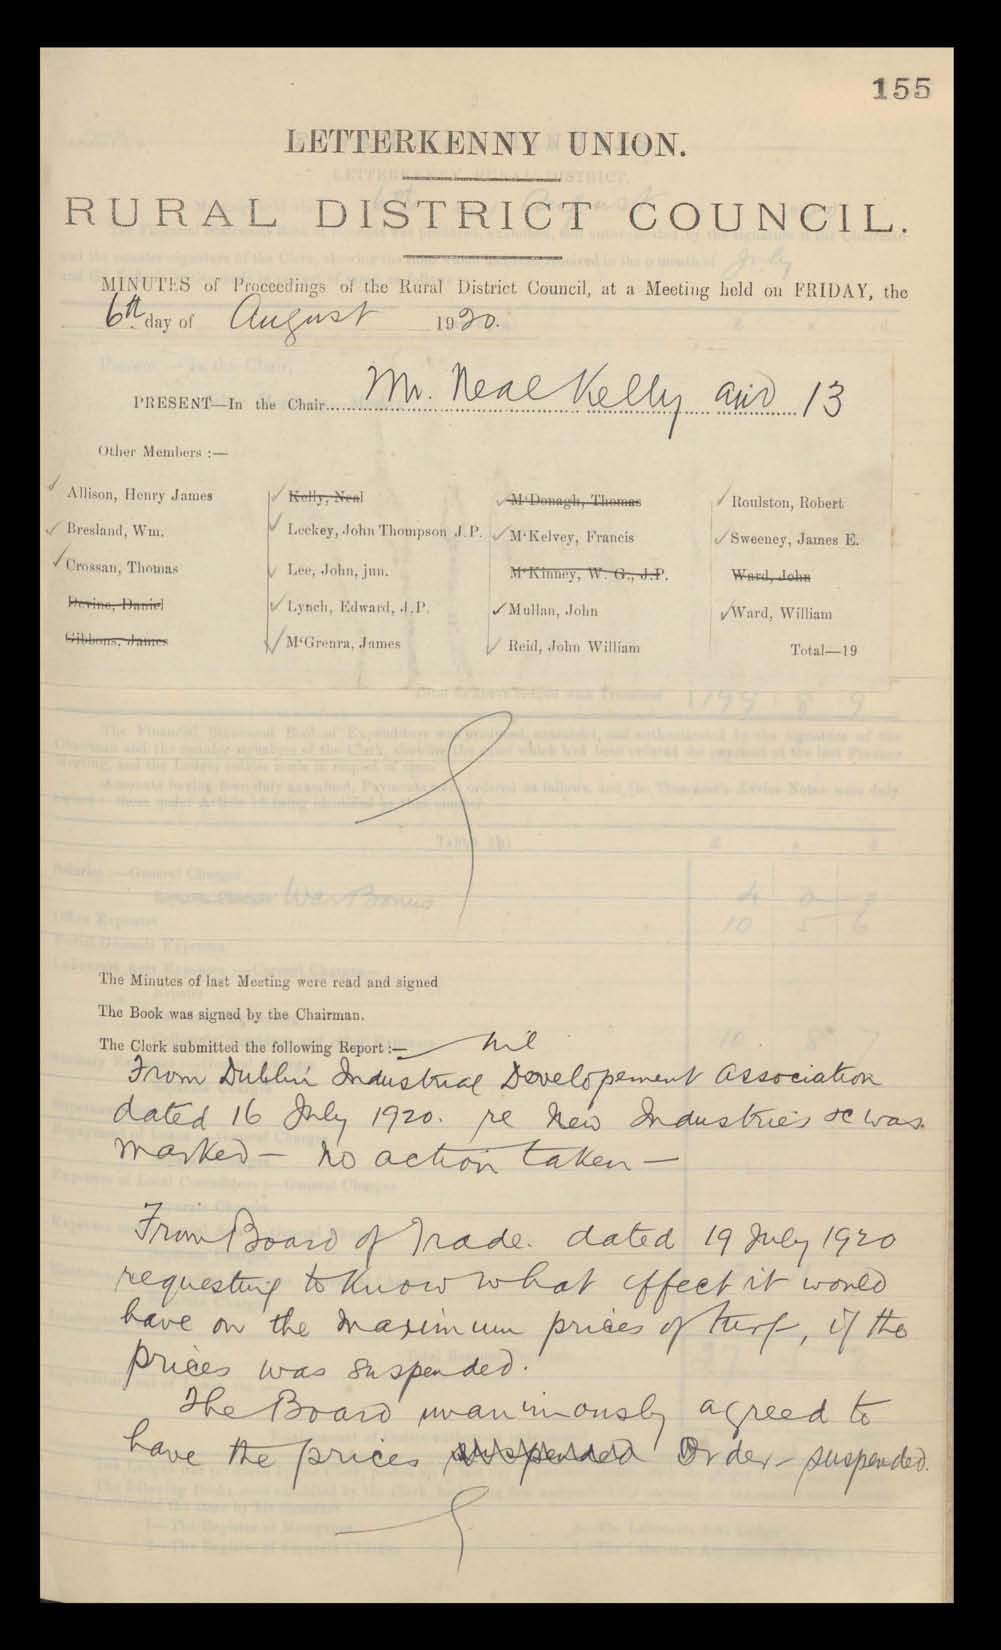 155
LETTERKENNY UNION.
RURAL DISTRICT COUNCIL.
MINUTES of Proceedings of the Rural District Council, at a Meeting held on FRIDAY, the
6th day of August 1920.
PRESENT—In the Chair Mr. Neal Kelly and 13
Other Members :—
Allison, Henry James
Bresland, Wm.
Crossan, Thomas
Devine, Daniel
Gibbons, James
Kelly, Neal
Leckey, John Thompson J.P.
Lee, John, jun.
Lynch, Edward, J.P.
M'Grenra, James
M'Donagh, Thomas
M'Kelvey, Francis
M'Kinney, W. G., J.P.
Mullan, John
Reid, John William
Roulston, Robert
Sweeney, James E.
Ward, John
Ward, William
Total—19
The Minutes of last Meeting were read and signed
The Book was signed by the Chairman.
The Clerk submitted the following Report :— nil
From Dublin Industrial Developement Association
dated 16 July 1920. re New Industries &c was
marked — No action taken —
From Board of Trade. dated 19 July 1920
requesting to know what effect it would
have on the maximum prices of turf, if the
prices was suspended.
The Board unanimously agreed to
have the prices suspended Order - suspended.